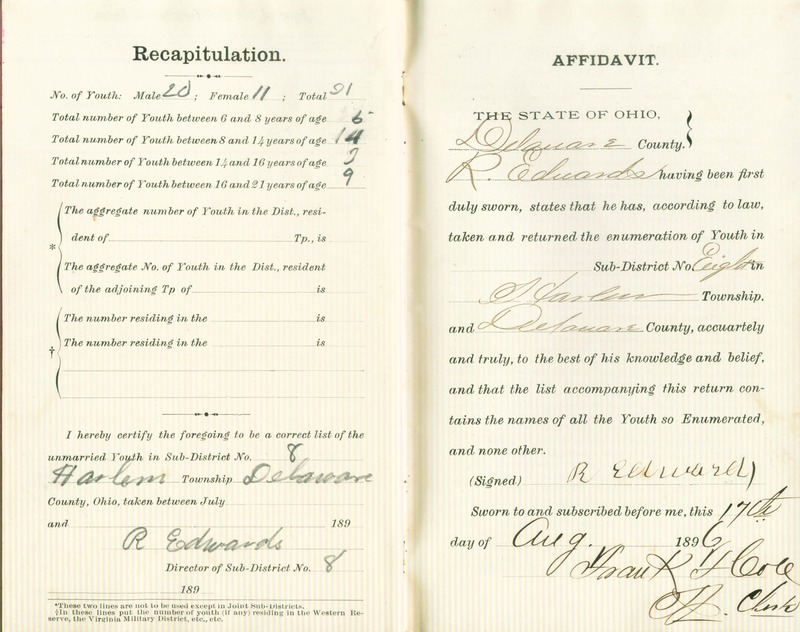 Recapitulation.
No. of Youth: Male 20; Female 11; Total 31
Total number of Youth between 6 and 8 years of age 5
Total number of Youth between 8 and 14 years of age 14
Total number of Youth between 14 and 16 years of age 3
Total number of Youth between 16 and 21 years of age 9
The aggregate number of Youth in the Dist., resi-
* dent of Tp., is
The aggregate No. of Youth in the Dist., resident
of the adjoining Tp of is
The number residing in the is
† The number residing in the is
I hereby certify the foregoing to be a correct list of the
unmarried Youth in Sub-District No. 8
Harlem Township Delaware
County, Ohio, taken between July
and 189
R Edwards
Director of Sub-District No. 8
189
*These two lines are not to be used except in Joint Sub-Districts.
†In these lines put the number of youth (if any) residing in the Western Re-
serve, the Virginia Military District, etc., etc.
AFFIDAVIT.
THE STATE OF OHIO,
Delaware County. }
R. Edwards having been first
duly sworn, states that he has, according to law,
taken and returned the enumeration of Youth in
Sub-District No. Eight in
Harlem Township.
and Delaware County, accuartely
and truly, to the best of his knowledge and belief,
and that the list accompanying this return con-
tains the names of all the Youth so Enumerated,
and none other.
(Signed) R Edwards
Sworn to and subscribed before me, this 17th
day of Aug. 1896
Frank Cole
Clerk